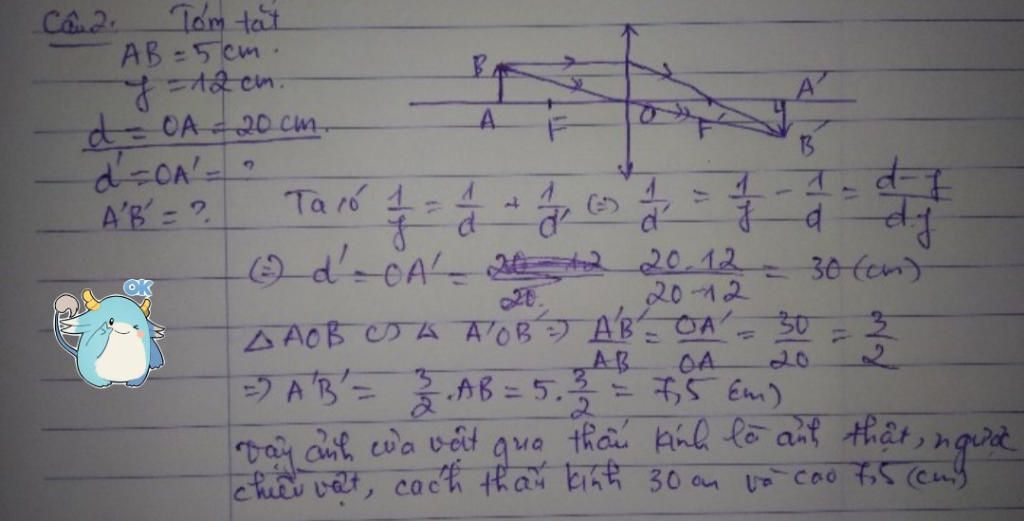 Câu 2. Tóm tắt
AB = 5 cm.
f = 12 cm.
d = OA = 20 cm.
d' = OA' = ?
A'B' = ?
B A F O F' A' B'
Ta có 1/f = 1/d + 1/d' (=) 1/d' = 1/f - 1/d = d-f/d.f
(=) d' = OA' = 20.12/20-12 = 30 (cm)
△ AOB ∽ △ A'OB' => A'B'/AB = OA'/OA = 30/20 = 3/2
=> A'B' = 3/2 . AB = 5. 3/2 = 7,5 (cm)
OK
Vậy ảnh của vật qua thấu kính là ảnh thật, ngược
chiều vật, cách thấu kính 30 cm và cao 7,5 (cm)